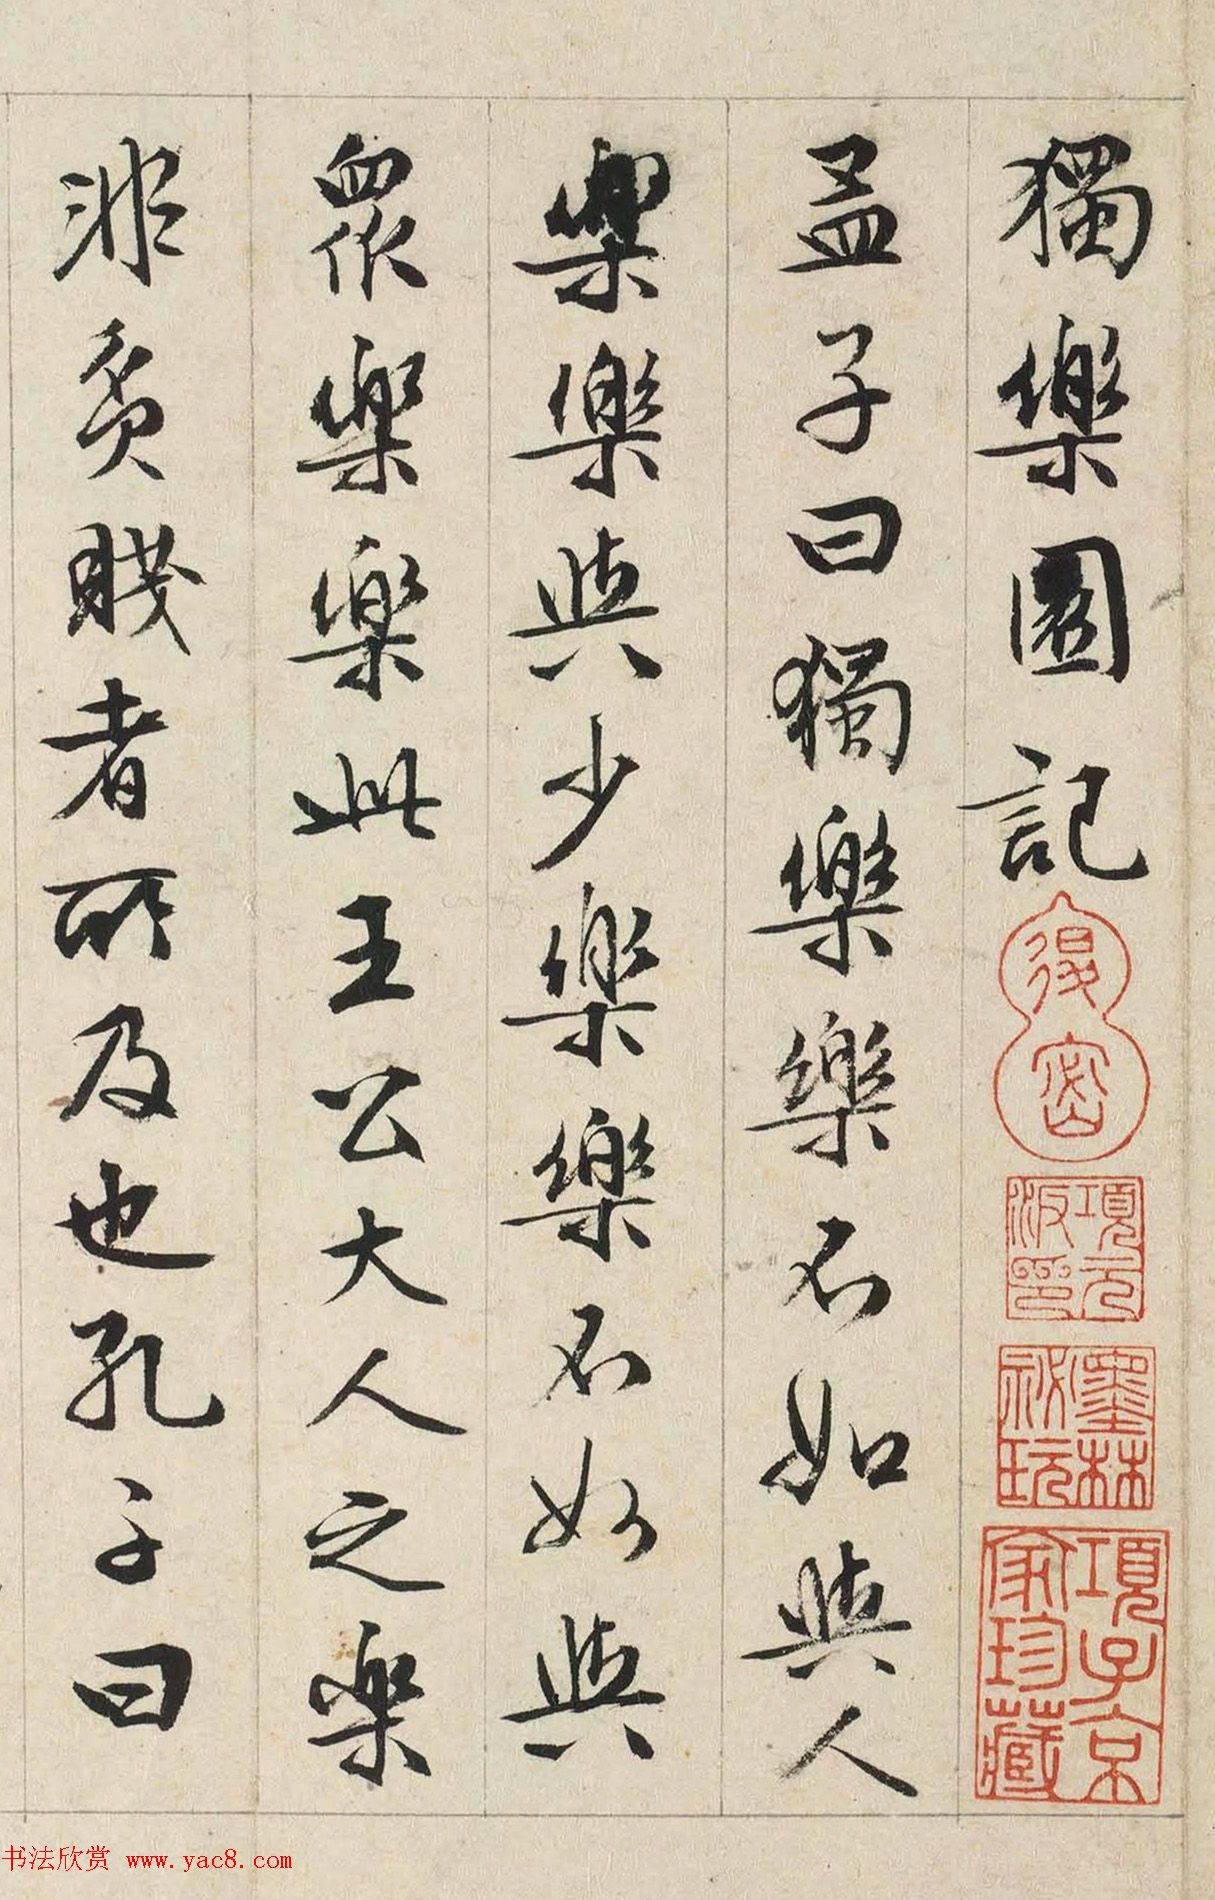 獨樂園記
孟子曰獨樂樂不如與人
樂樂與少樂樂不如與
眾樂樂此王公大人之樂
非貧賤者所及也孔子曰
項元汴印
墨林秘玩
項子京家珍藏
书法欣赏 www.yac8.com